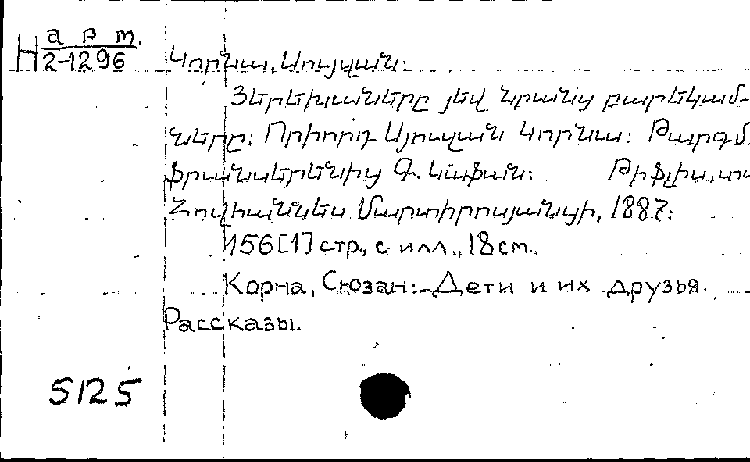 а р т.
Н 2-1296
Կորնա, Սույզան:
Յերեխաները յեվ նրանց բարեկամ-
ները: Որիորդ Սյուզան Կորնա: Թարգմ.
ֆրանսերենից Գ.           Թիֆլիս, տպ
Հովհաննես Մարտիրոսյանցի, 1887:
156[1] стр., с илл., 18 cm.
Корна, Сюзан: Дети и их друзья.
Рассказы.
5125